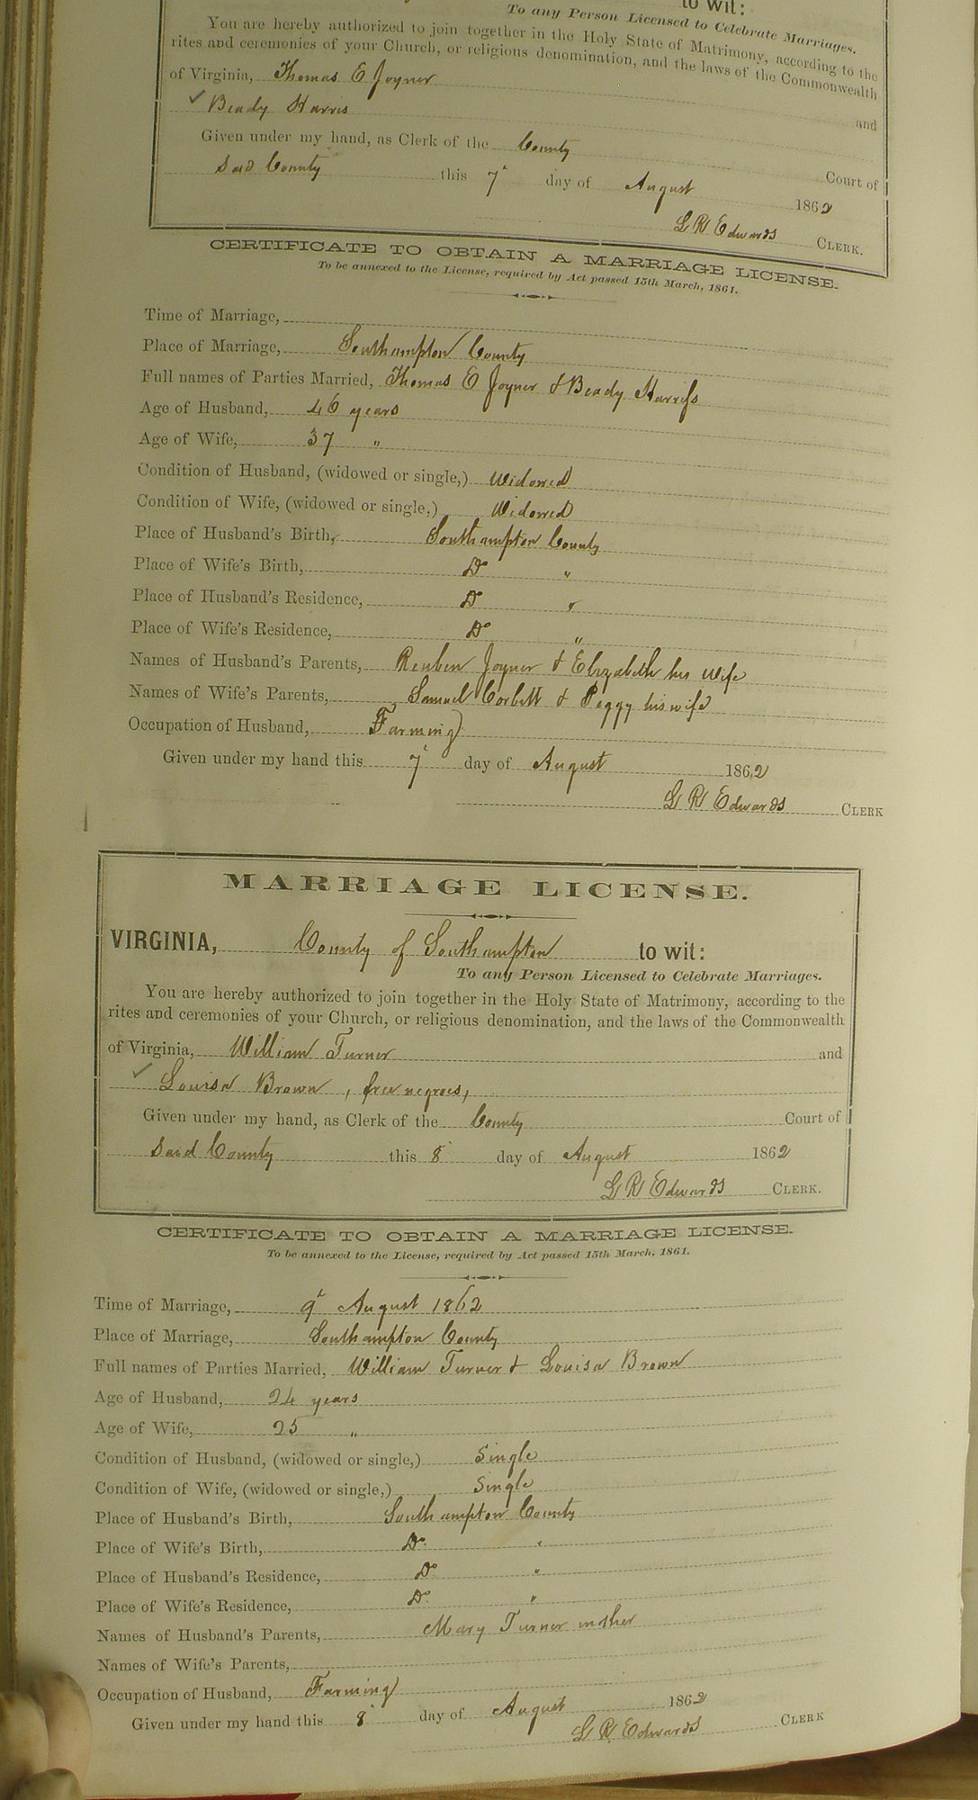 to wit:
To any Person Licensed to Celebrate Marriages.
You are hereby authorized to join together in the Holy State of Matrimony, according to the
rites and ceremonies of your Church, or religious denomination, and the laws of the Commonwealth
of Virginia, Thomas E Joyner
and
✓ Beady Harris
Given under my hand, as Clerk of the County Court of
Said County this 7" day of August 1862
G R Edwards CLERK.
CERTIFICATE TO OBTAIN A MARRIAGE LICENSE.
To be annexed to the License, required by Act passed 15th March, 1861.
Time of Marriage,
Place of Marriage, Southampton County
Full names of Parties Married, Thomas E Joyner & Beady Harriss
Age of Husband, 46 years
Age of Wife, 37 "
Condition of Husband, (widowed or single,) Widowed
Condition of Wife, (widowed or single,) Widowed
Place of Husband's Birth, Southampton County
Place of Wife's Birth, Do "
Place of Husband's Residence, Do "
Place of Wife's Residence, Do "
Names of Husband's Parents, Reuben Joyner & Elizabeth his wife
Names of Wife's Parents, Samuel Corbett & Peggy his wife
Occupation of Husband, Farming
Given under my hand this 7" day of August 1862
G R Edwards CLERK
MARRIAGE LICENSE.
VIRGINIA, County of Southampton to wit:
To any Person Licensed to Celebrate Marriages.
You are hereby authorized to join together in the Holy State of Matrimony, according to the
rites and ceremonies of your Church, or religious denomination, and the laws of the Commonwealth
of Virginia, William Turner and
✓ Louisa Brown, free negroes,
Given under my hand, as Clerk of the County Court of
Said County this 8" day of August 1862
G R Edwards CLERK.
CERTIFICATE TO OBTAIN A MARRIAGE LICENSE.
To be annexed to the License, required by Act passed 15th March, 1861.
Time of Marriage, 9" August 1862
Place of Marriage, Southampton County
Full names of Parties Married, William Turner & Louisa Brown
Age of Husband, 24 years
Age of Wife, 25 "
Condition of Husband, (widowed or single,) Single
Condition of Wife, (widowed or single,) Single
Place of Husband's Birth, Southampton County
Place of Wife's Birth, Do "
Place of Husband's Residence, Do "
Place of Wife's Residence, Do "
Names of Husband's Parents, Mary Turner mother
Names of Wife's Parents,
Occupation of Husband, Farming
Given under my hand this 8" day of August 1862
G R Edwards CLERK